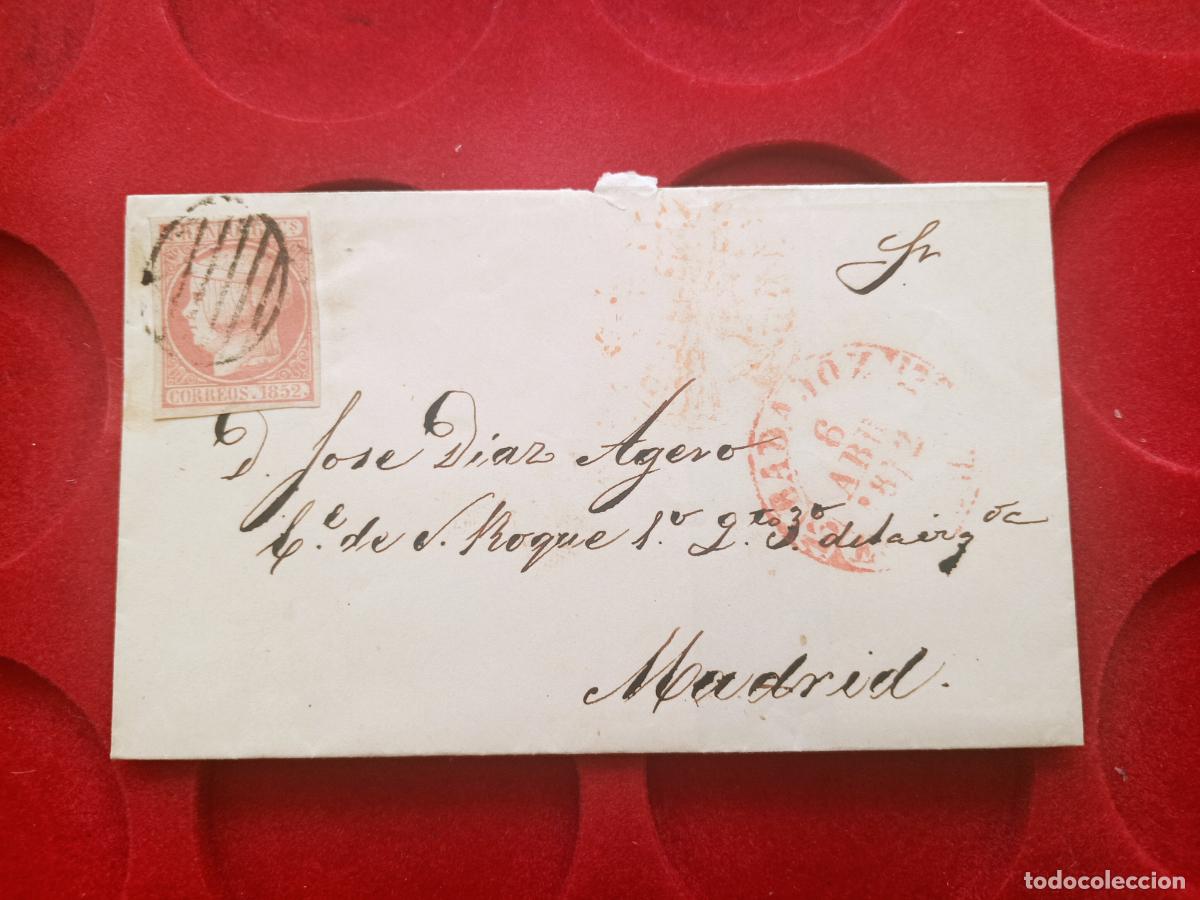 CORREOS. 1852.
Sr
D. Jose Diaz Agero
C.e de S. Roque 1.o 2.to 3.o de la izq
Madrid.
BADAJOZ
6
ABR
todocoleccion